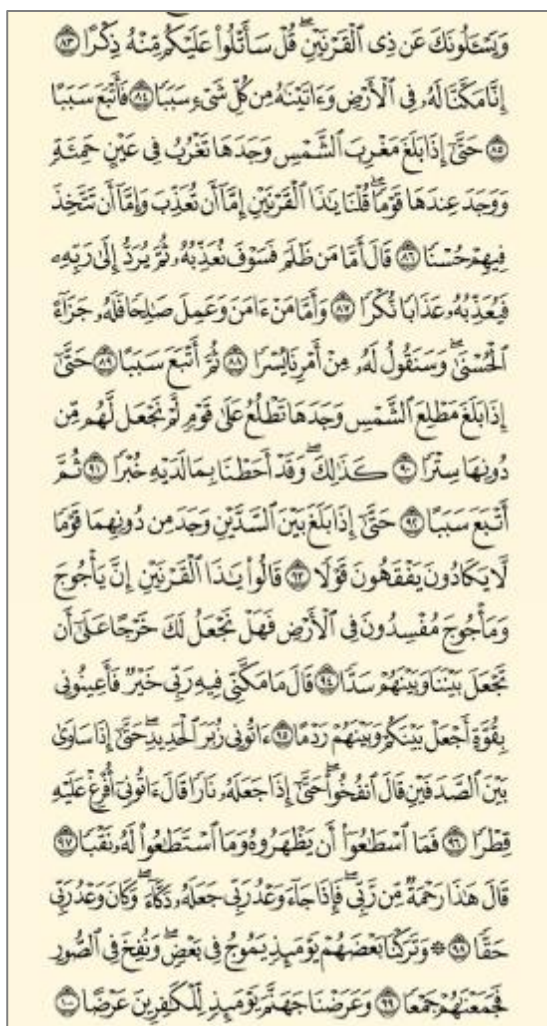 وَيَسْـَٔلُونَكَ عَن ذِى ٱلْقَرْنَيْنِ ۖ قُلْ سَأَتْلُوا۟ عَلَيْكُم مِّنْهُ ذِكْرًا ٨٣
إِنَّا مَكَّنَّا لَهُۥ فِى ٱلْأَرْضِ وَءَاتَيْنَٰهُ مِن كُلِّ شَىْءٍ سَبَبًا ٨٤ فَأَتْبَعَ سَبَبًا
٨٥ حَتَّىٰٓ إِذَا بَلَغَ مَغْرِبَ ٱلشَّمْسِ وَجَدَهَا تَغْرُبُ فِى عَيْنٍ حَمِئَةٍ
وَوَجَدَ عِندَهَا قَوْمًا ۗ قُلْنَا يَٰذَا ٱلْقَرْنَيْنِ إِمَّآ أَن تُعَذِّبَ وَإِمَّآ أَن تَتَّخِذَ
فِيهِمْ حُسْنًا ٨٦ قَالَ أَمَّا مَن ظَلَمَ فَسَوْفَ نُعَذِّبُهُۥ ثُمَّ يُرَدُّ إِلَىٰ رَبِّهِۦ
فَيُعَذِّبُهُۥ عَذَابًا نُّكْرًا ٨٧ وَأَمَّا مَنْ ءَامَنَ وَعَمِلَ صَٰلِحًا فَلَهُۥ جَزَآءً
ٱلْحُسْنَىٰ ۖ وَسَنَقُولُ لَهُۥ مِنْ أَمْرِنَا يُسْرًا ٨٨ ثُمَّ أَتْبَعَ سَبَبًا ٨٩ حَتَّىٰٓ
إِذَا بَلَغَ مَطْلِعَ ٱلشَّمْسِ وَجَدَهَا تَطْلُعُ عَلَىٰ قَوْمٍ لَّمْ نَجْعَل لَّهُم مِّن
دُونِهَا سِتْرًا ٩٠ كَذَٰلِكَ ۖ وَقَدْ أَحَطْنَا بِمَا لَدَيْهِ خُبْرًا ٩١ ثُمَّ
أَتْبَعَ سَبَبًا ٩٢ حَتَّىٰٓ إِذَا بَلَغَ بَيْنَ ٱلسَّدَّيْنِ وَجَدَ مِن دُونِهِمَا قَوْمًا
لَّا يَكَادُونَ يَفْقَهُونَ قَوْلًا ٩٣ قَالُوا۟ يَٰذَا ٱلْقَرْنَيْنِ إِنَّ يَأْجُوجَ
وَمَأْجُوجَ مُفْسِدُونَ فِى ٱلْأَرْضِ فَهَلْ نَجْعَلُ لَكَ خَرْجًا عَلَىٰٓ أَن
تَجْعَلَ بَيْنَنَا وَبَيْنَهُمْ سَدًّا ٩٤ قَالَ مَا مَكَّنِّى فِيهِ رَبِّى خَيْرٌ فَأَعِينُونِى
بِقُوَّةٍ أَجْعَلْ بَيْنَكُمْ وَبَيْنَهُمْ رَدْمًا ٩٥ ءَاتُونِى زُبَرَ ٱلْحَدِيدِ ۖ حَتَّىٰٓ إِذَا سَاوَىٰ
بَيْنَ ٱلصَّدَفَيْنِ قَالَ ٱنفُخُوا۟ ۖ حَتَّىٰٓ إِذَا جَعَلَهُۥ نَارًا قَالَ ءَاتُونِىٓ أُفْرِغْ عَلَيْهِ
قِطْرًا ٩٦ فَمَا ٱسْطَٰعُوٓا۟ أَن يَظْهَرُوهُ وَمَا ٱسْتَطَٰعُوا۟ لَهُۥ نَقْبًا ٩٧
قَالَ هَٰذَا رَحْمَةٌ مِّن رَّبِّى ۖ فَإِذَا جَآءَ وَعْدُ رَبِّى جَعَلَهُۥ دَكَّآءَ ۖ وَكَانَ وَعْدُ رَبِّى
حَقًّا ٩٨ ۞ وَتَرَكْنَا بَعْضَهُمْ يَوْمَئِذٍ يَمُوجُ فِى بَعْضٍ ۖ وَنُفِخَ فِى ٱلصُّورِ
فَجَمَعْنَٰهُمْ جَمْعًا ٩٩ وَعَرَضْنَا جَهَنَّمَ يَوْمَئِذٍ لِّلْكَٰفِرِينَ عَرْضًا ١٠٠